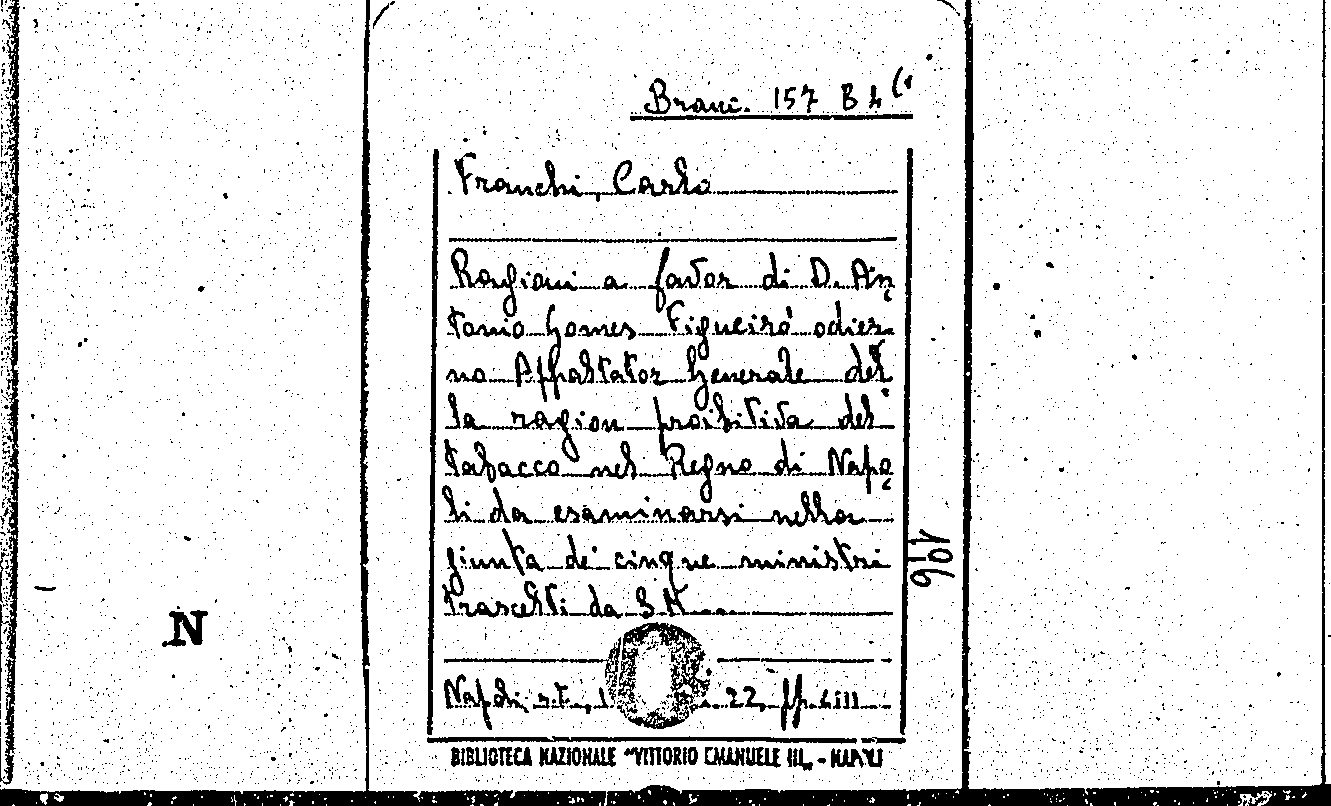 Branc. 157 B 4 (1
Franchi, Carlo
Ragioni a favor di D. An
tonio Gomes Figueirò odier
no Appaltator Generale del
la ragion proibitiva del
tabacco nel Regno di Napo
li da esaminarsi nella
giunta de' cinque ministri
trascelti da S.M....
Napoli, s.t., 22, pp. LIII
BIBLIOTECA NAZIONALE "VITTORIO EMANUELE III" - NAPOLI
106
N